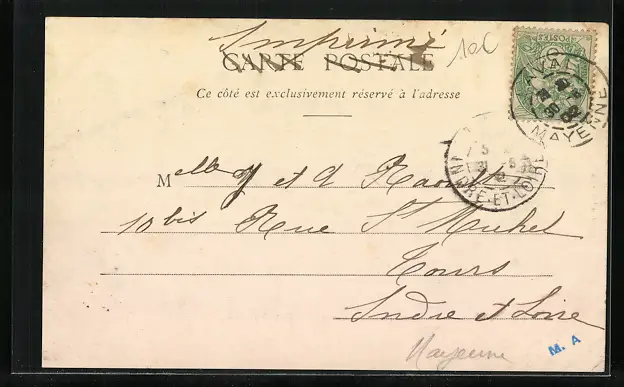 Imprimé
10c
CARTE POSTALE
POSTES
Ce côté est exclusivement réservé à l'adresse
LAVAL
MAYENNE
INDRE-ET-LOIRE
Melles et
10 bis Rue St Michel
Tours
Indre et Loire
Mayenne
M. A